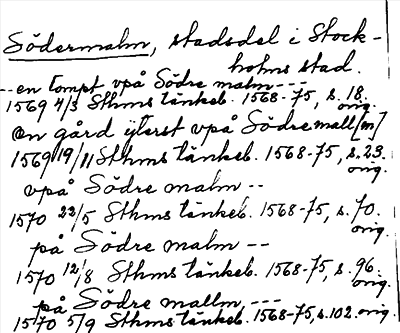 Södermalm, stadsdel i Stock-
holms stad.
-- en tompt vpå Södre malm ---
1569 4/3 Sthms tänkeb. 1568-75, s. 18.
orig.
en gård yterst vpå Södre mall[m]
1569 19/11 Sthms tänkeb. 1568-75, s. 23.
orig.
vpå Södre malm --
1570 22/5 Sthms tänkeb. 1568-75, s. 70.
orig.
på Södre malm --
1570 12/8 Sthms tänkeb. 1568-75, s. 96.
orig.
på Södre mallm, ---
1570 5/9 Sthms tänkeb. 1568-75, s. 102. orig.